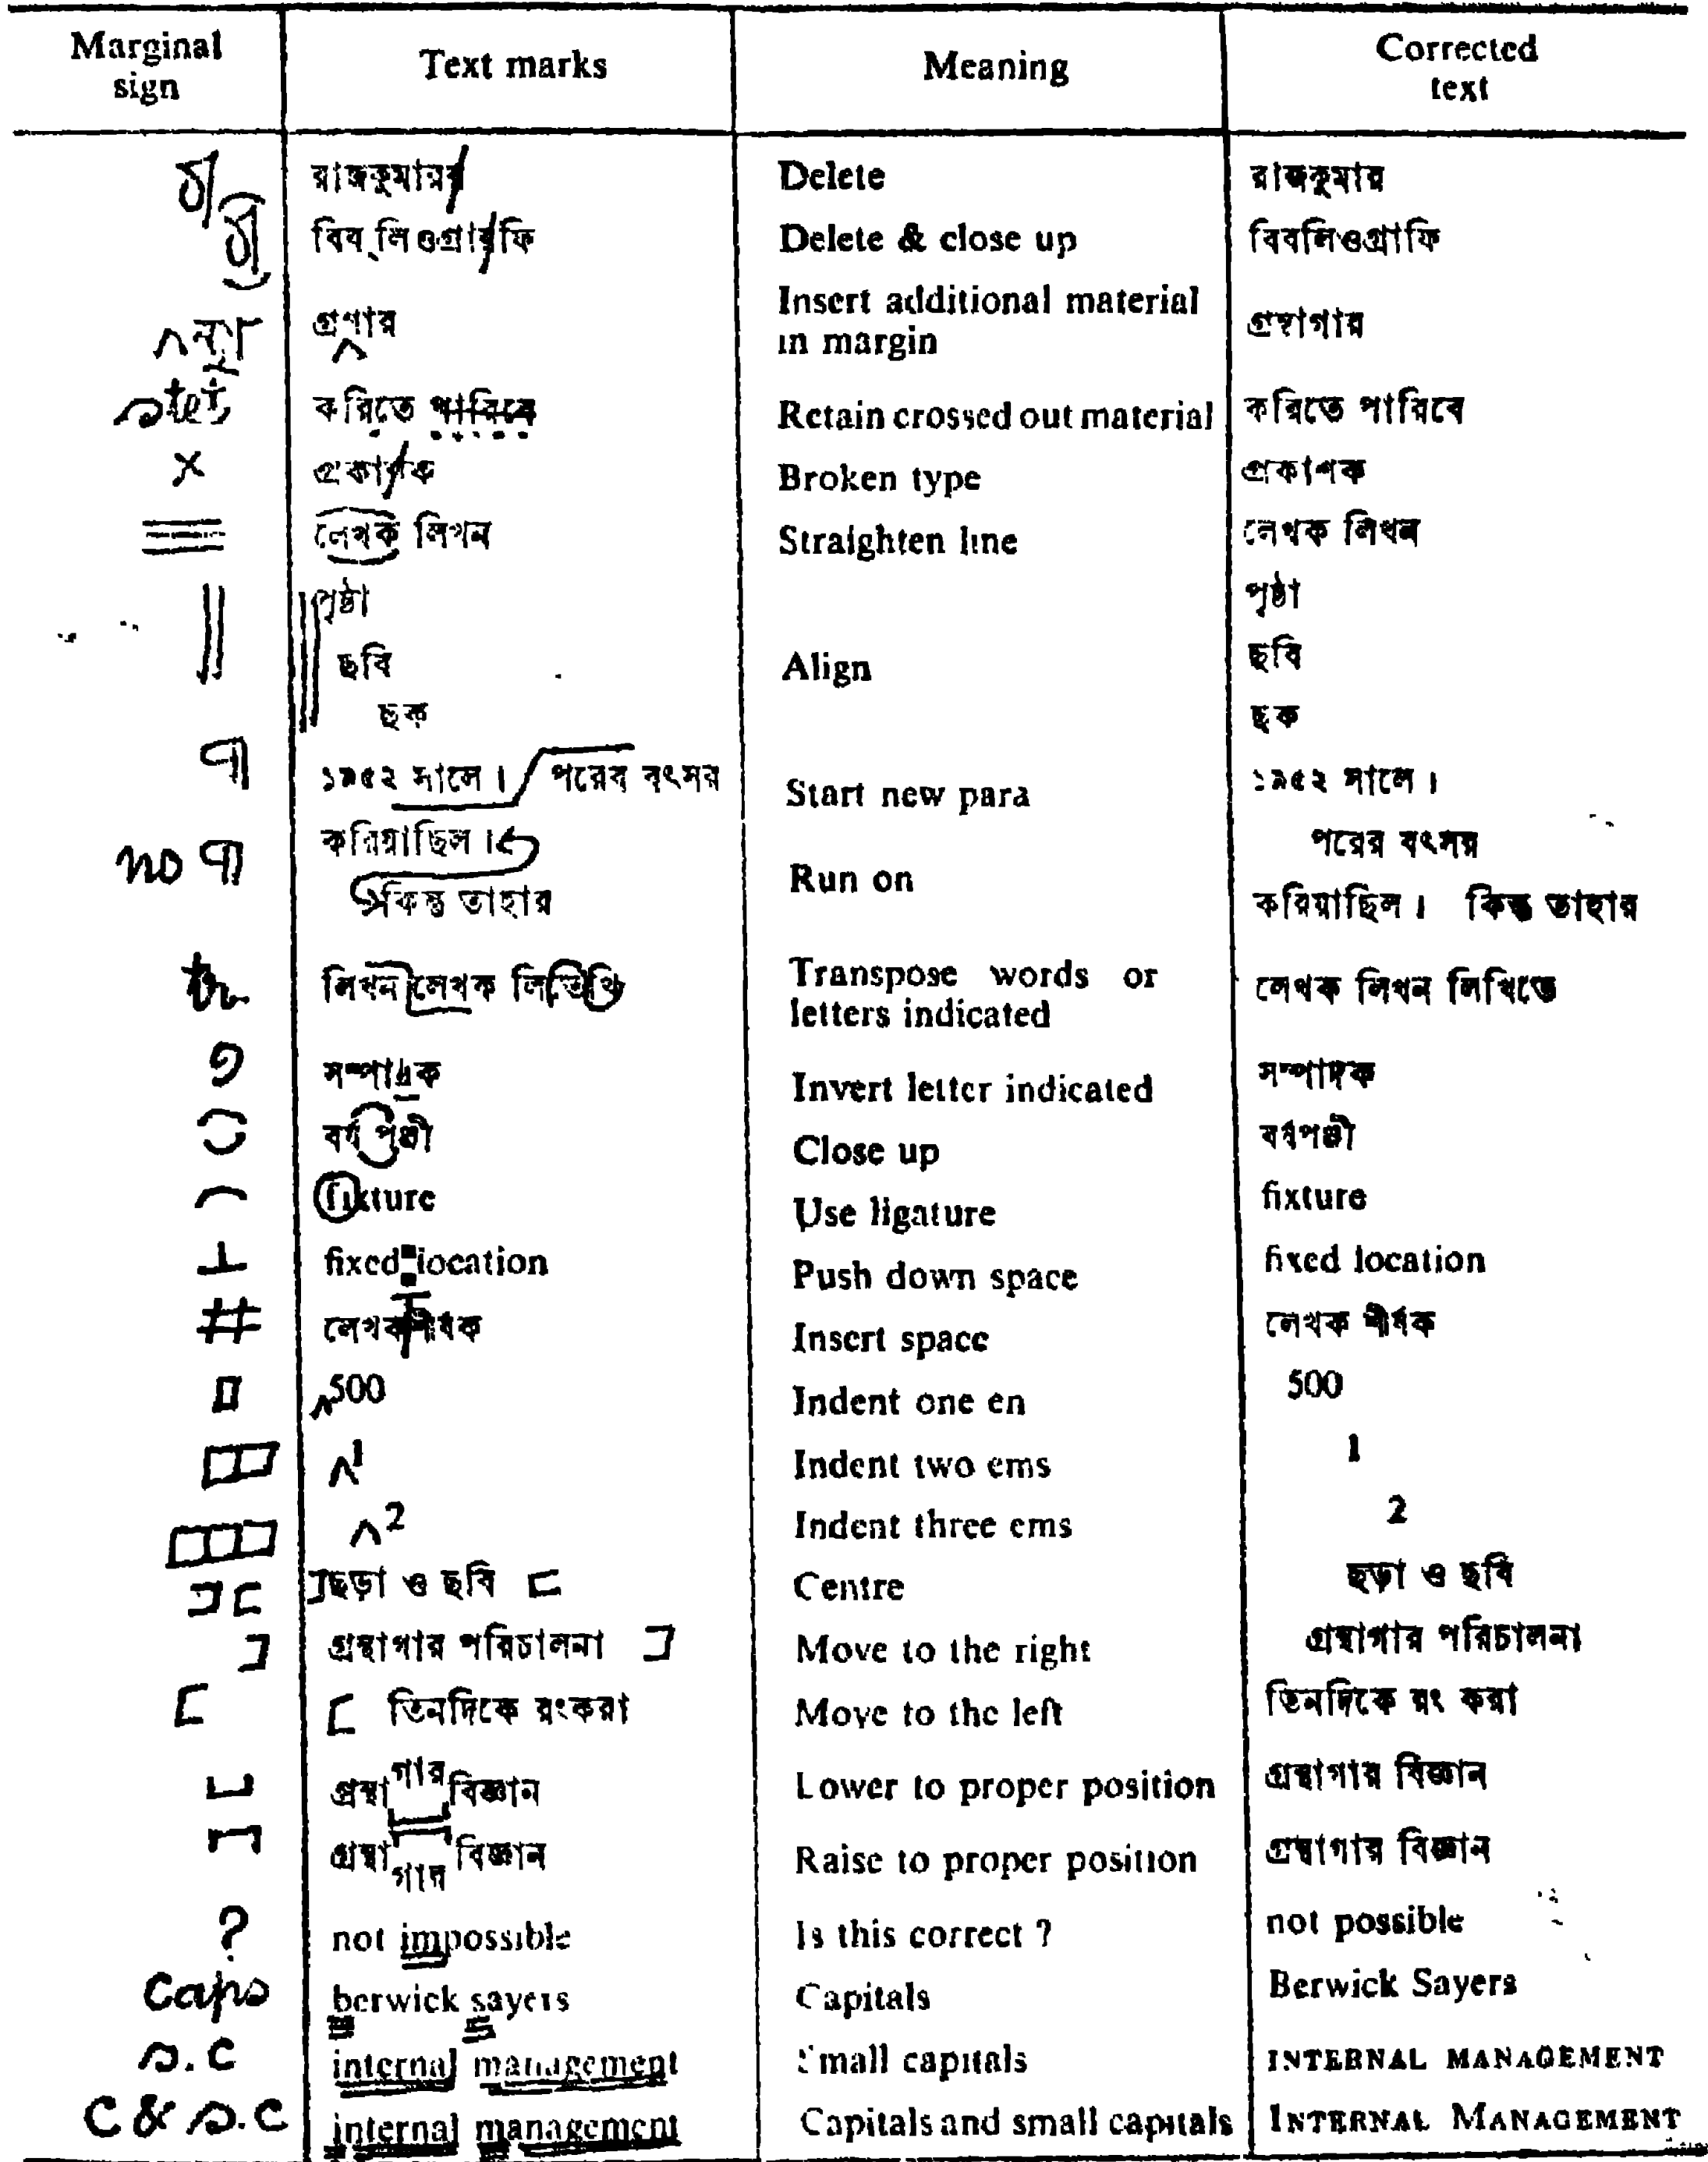 Marginal sign Text marks Meaning Corrected text
রাজকুমারর Delete রাজকুমার
বিব্ লিওগ্রাফি Delete & close up বিবলিওগ্রাফি
Insert additional material
in margin গ্রন্থাগার
stet করিতে পারিবে Retain crossed out material করিতে পারিবে
× প্রকাশক Broken type প্রকাশক
লেখক লিখন Straighten line লেখক লিখন
পৃষ্ঠা পৃষ্ঠা
ছবি Align ছবি
ছক ছক
¶ ১৯৫২ সালে। পরের বৎসর Start new para ১৯৫২ সালে।
পরের বৎসর
no ¶ করিয়াছিল। Run on করিয়াছিল। কিন্তু তাহার
কিন্তু তাহার
tr. লিখন লেখক লিতেখি Transpose words or
letters indicated লেখক লিখন লিখিতে
সম্পাদক Invert letter indicated সম্পাদক
Close up
fixture Use ligature fixture
⊥ fixed location Push down space fixed location
# লেখকশীর্ষক Insert space লেখক শীর্ষক
500 Indent one en 500
1 Indent two ems 1
2 Indent three ems 2
][ ]ছড়া ও ছবি [ Centre ছড়া ও ছবি
] গ্রন্থাগার পরিচালনা ] Move to the right গ্রন্থাগার পরিচালনা
[ [ তিনদিকে রংকরা Move to the left তিনদিকে রং করা
গ্রন্থাগার বিজ্ঞান Lower to proper position গ্রন্থাগার বিজ্ঞান
গ্রন্থাগার বিজ্ঞান Raise to proper position গ্রন্থাগার বিজ্ঞান
? not impossible Is this correct ? not possible
Caps berwick sayers Capitals Berwick Sayers
s.c internal management Small capitals INTERNAL MANAGEMENT
C & s.c internal management Capitals and small capitals INTERNAL MANAGEMENT